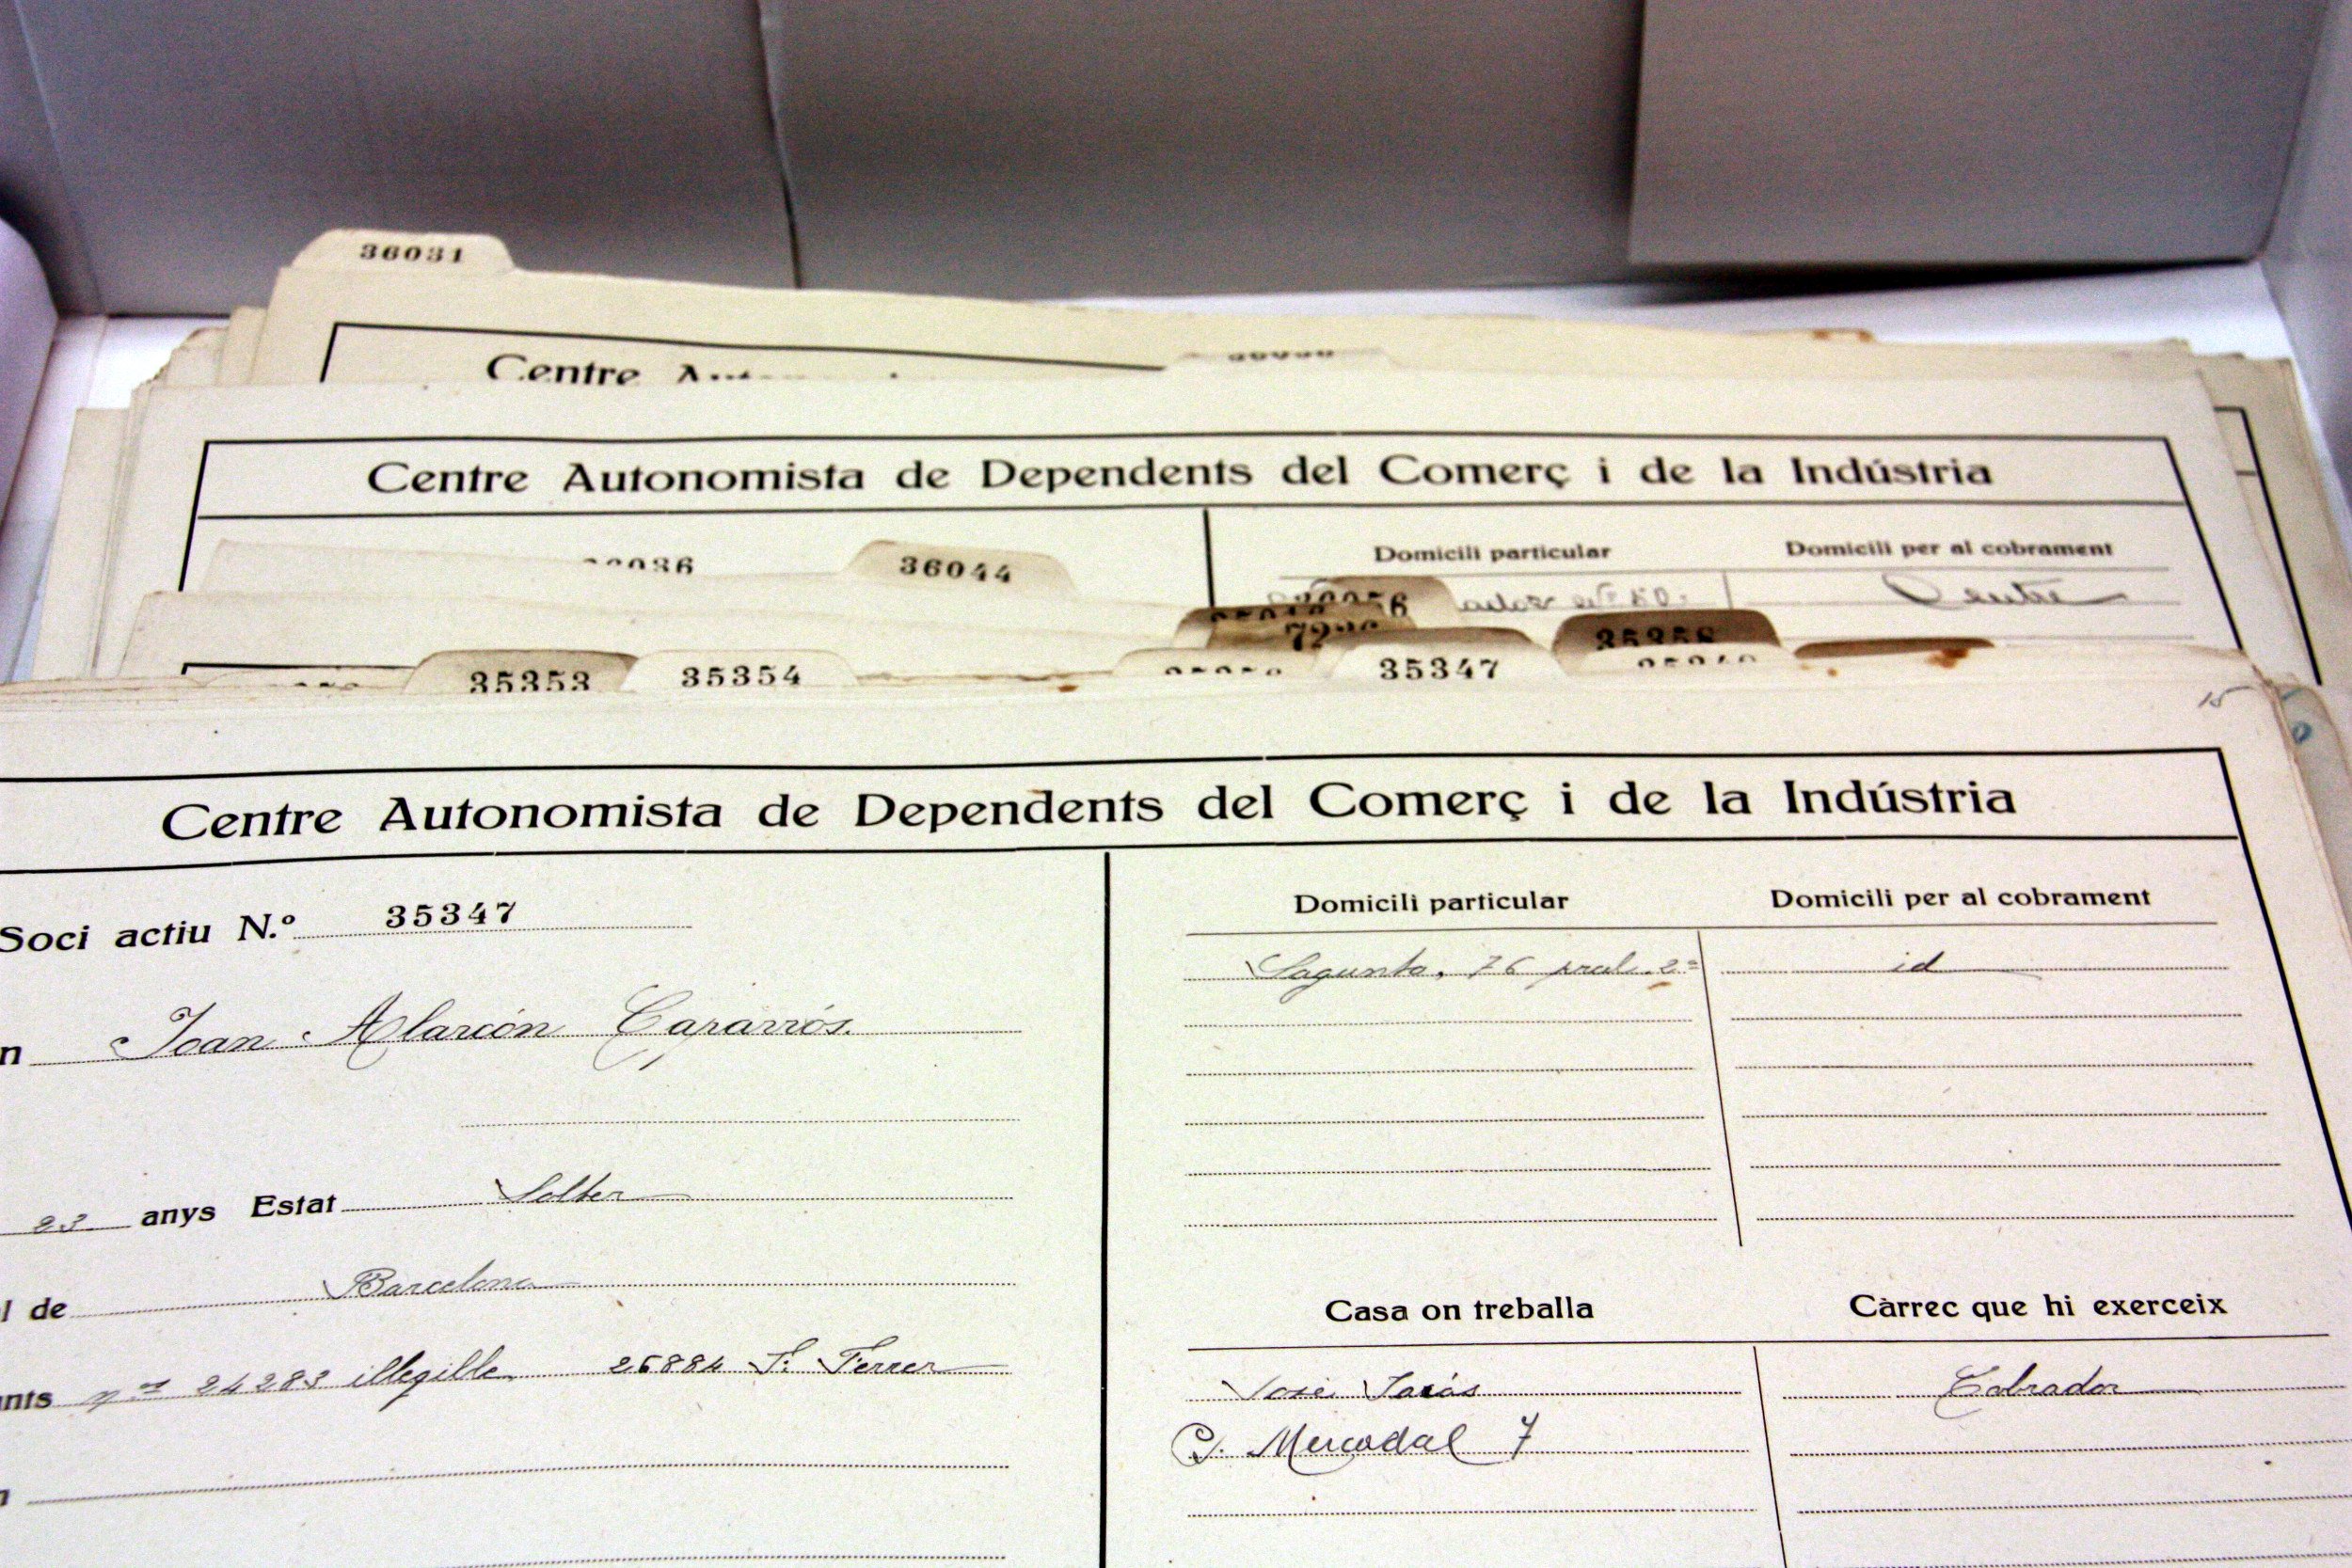 36031
Centre
Centre Autonomista de Dependents del Comerç i de la Indústria
Domicili particular Domicili per al cobrament
36044
Centre
35353 35354 35347
15
Centre Autonomista de Dependents del Comerç i de la Indústria
Soci actiu N.º 35347
Domicili particular Domicili per al cobrament
Sagunto, 76 pral. 2ª id
n Joan Alarcón Caparrós
23 anys Estat Solter
l de Barcelona
Casa on treballa Càrrec que hi exerceix
nts nos 24283 illegible 26884 F. Ferrer
José Cobrador
C. Mercadal 7